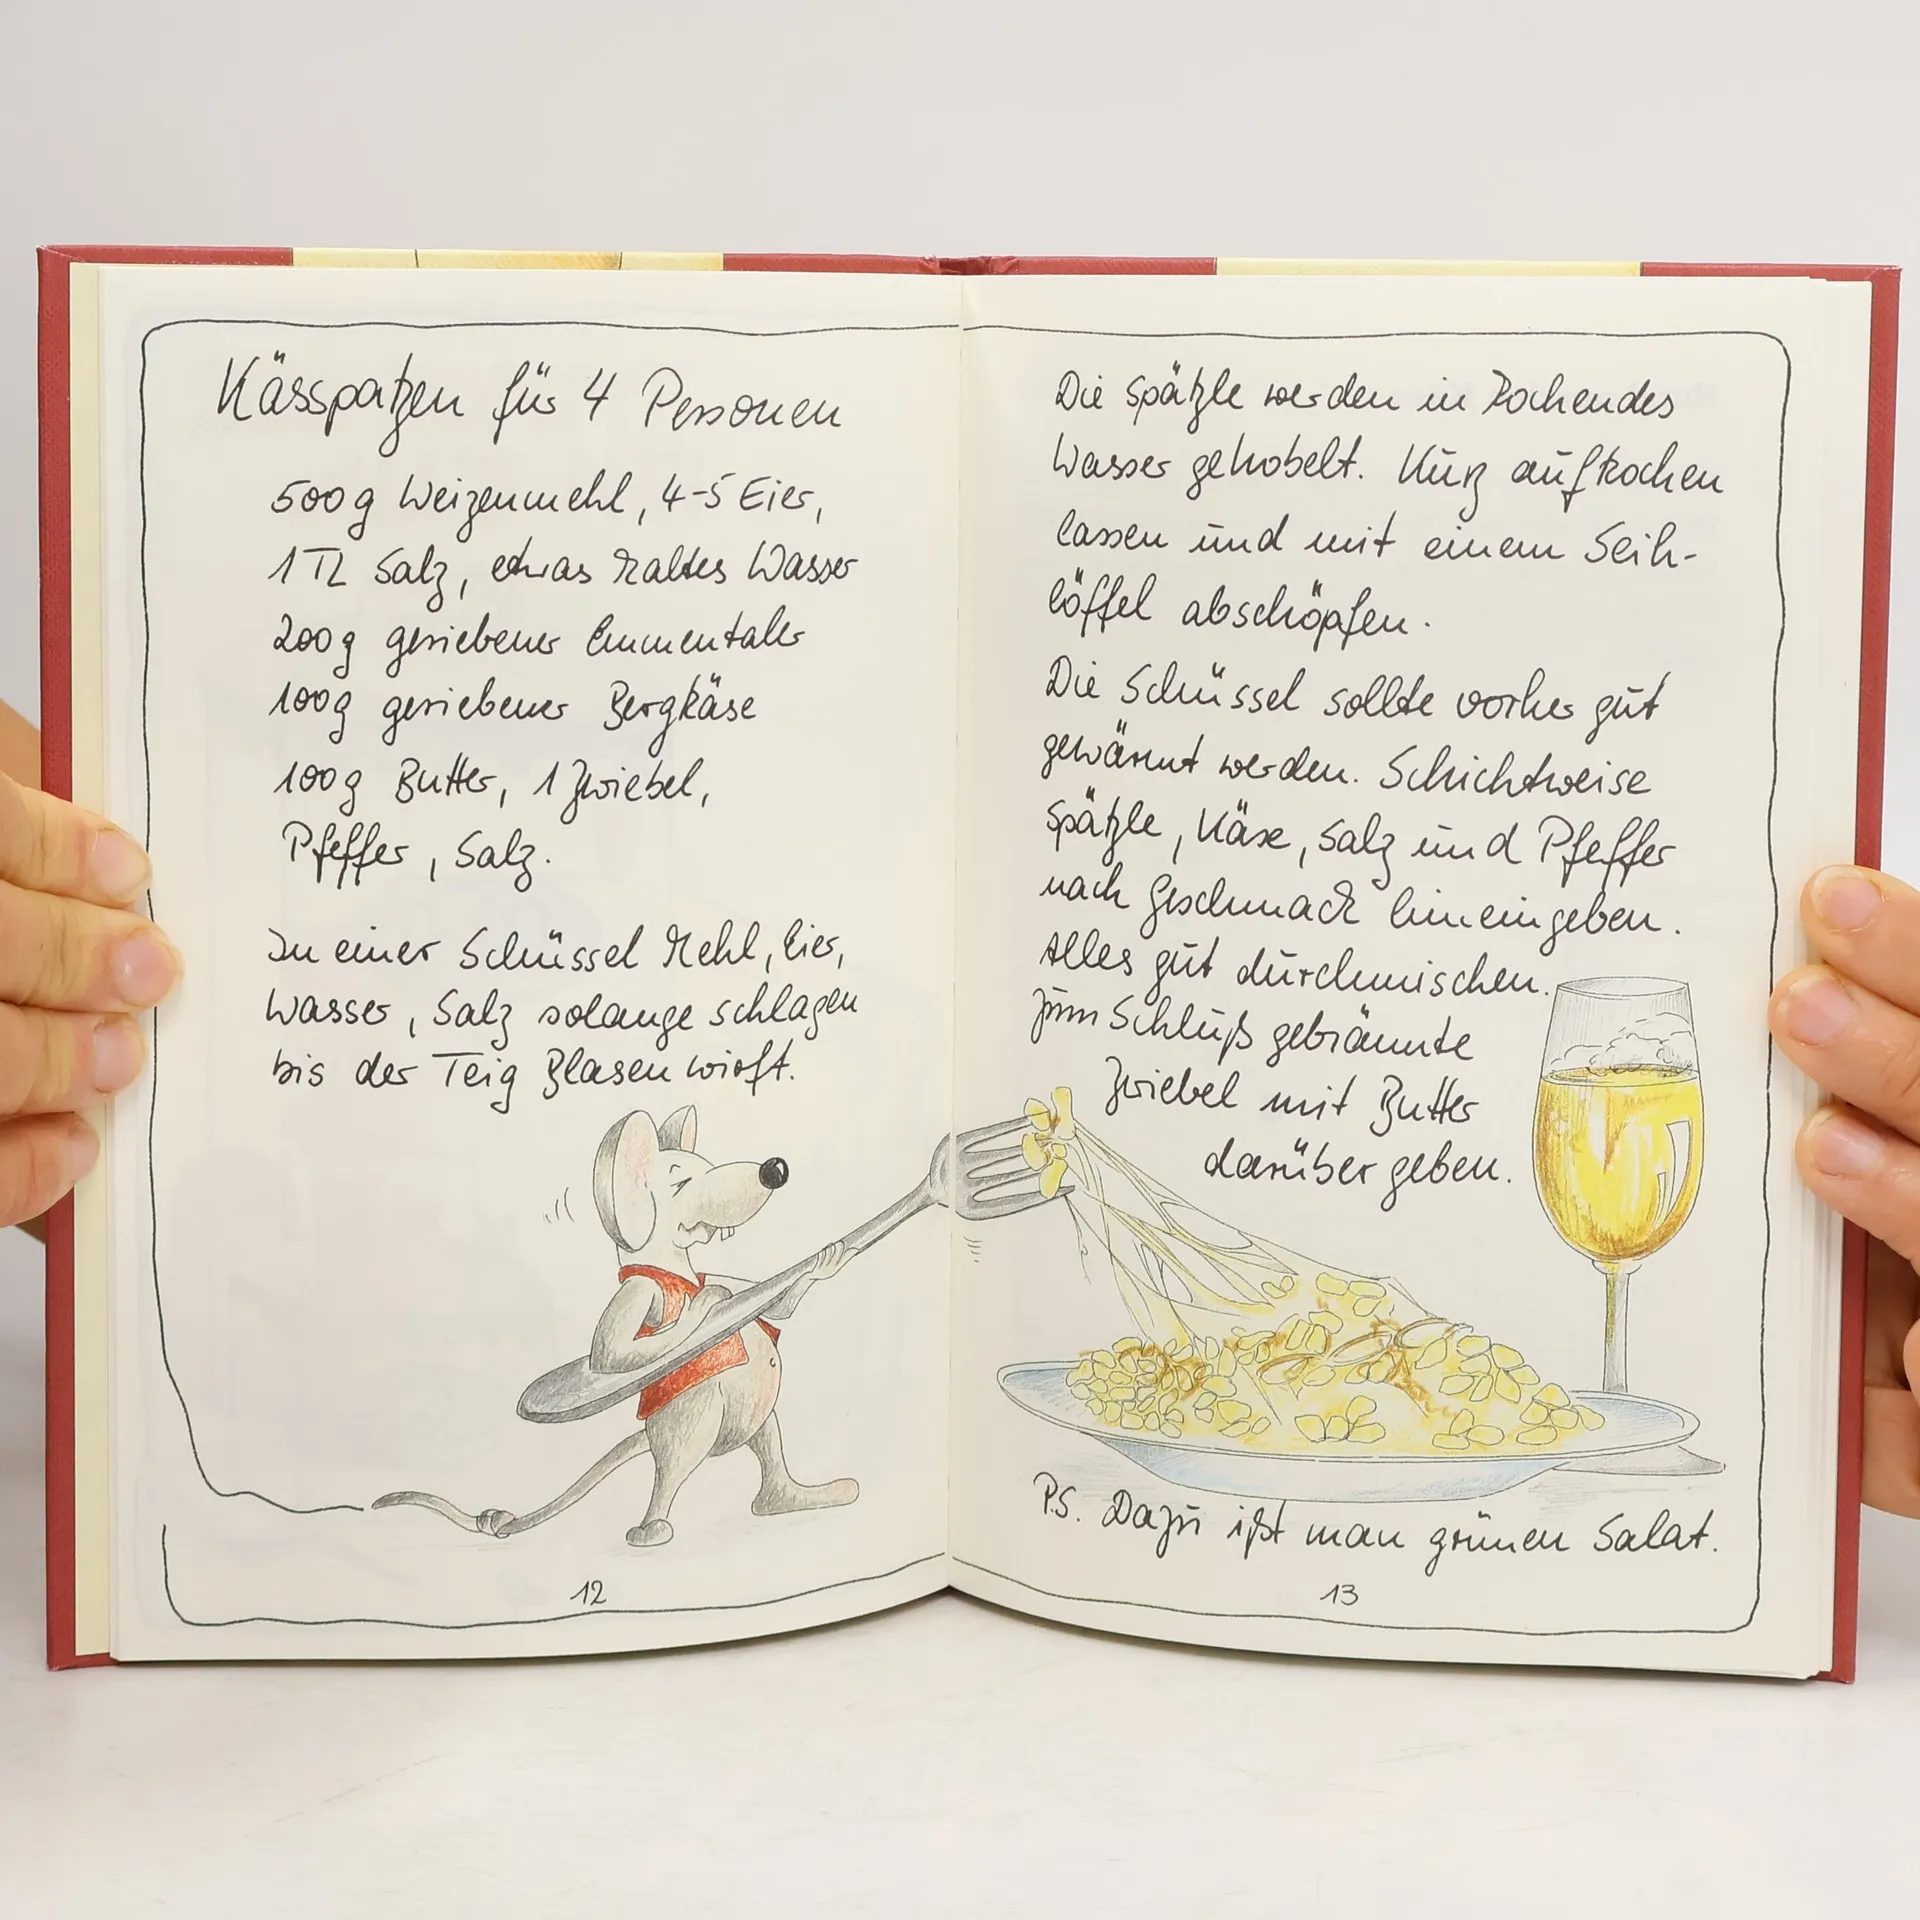 Kässpatzen für 4 Personen
500g Weizenmehl, 4-5 Eier,
1 TL Salz, etwas kaltes Wasser
200g geriebener Emmentaler
100g geriebener Bergkäse
100g Butter, 1 Zwiebel,
Pfeffer, Salz.
In einer Schüssel Mehl, Eier,
Wasser, Salz solange schlagen
bis der Teig Blasen wirft.
12
Die Spätzle werden in kochendes
Wasser gehobelt. Kurz aufkochen
lassen und mit einem Seih-
löffel abschöpfen.
Die Schüssel sollte vorher gut
gewärmt werden. Schichtweise
Spätzle, Käse, Salz und Pfeffer
nach Geschmack hineingeben.
Alles gut durchmischen.
Zum Schluß gebräunte
Zwiebel mit Butter
darüber geben.
P.S. Dazu ißt man grünen Salat.
13